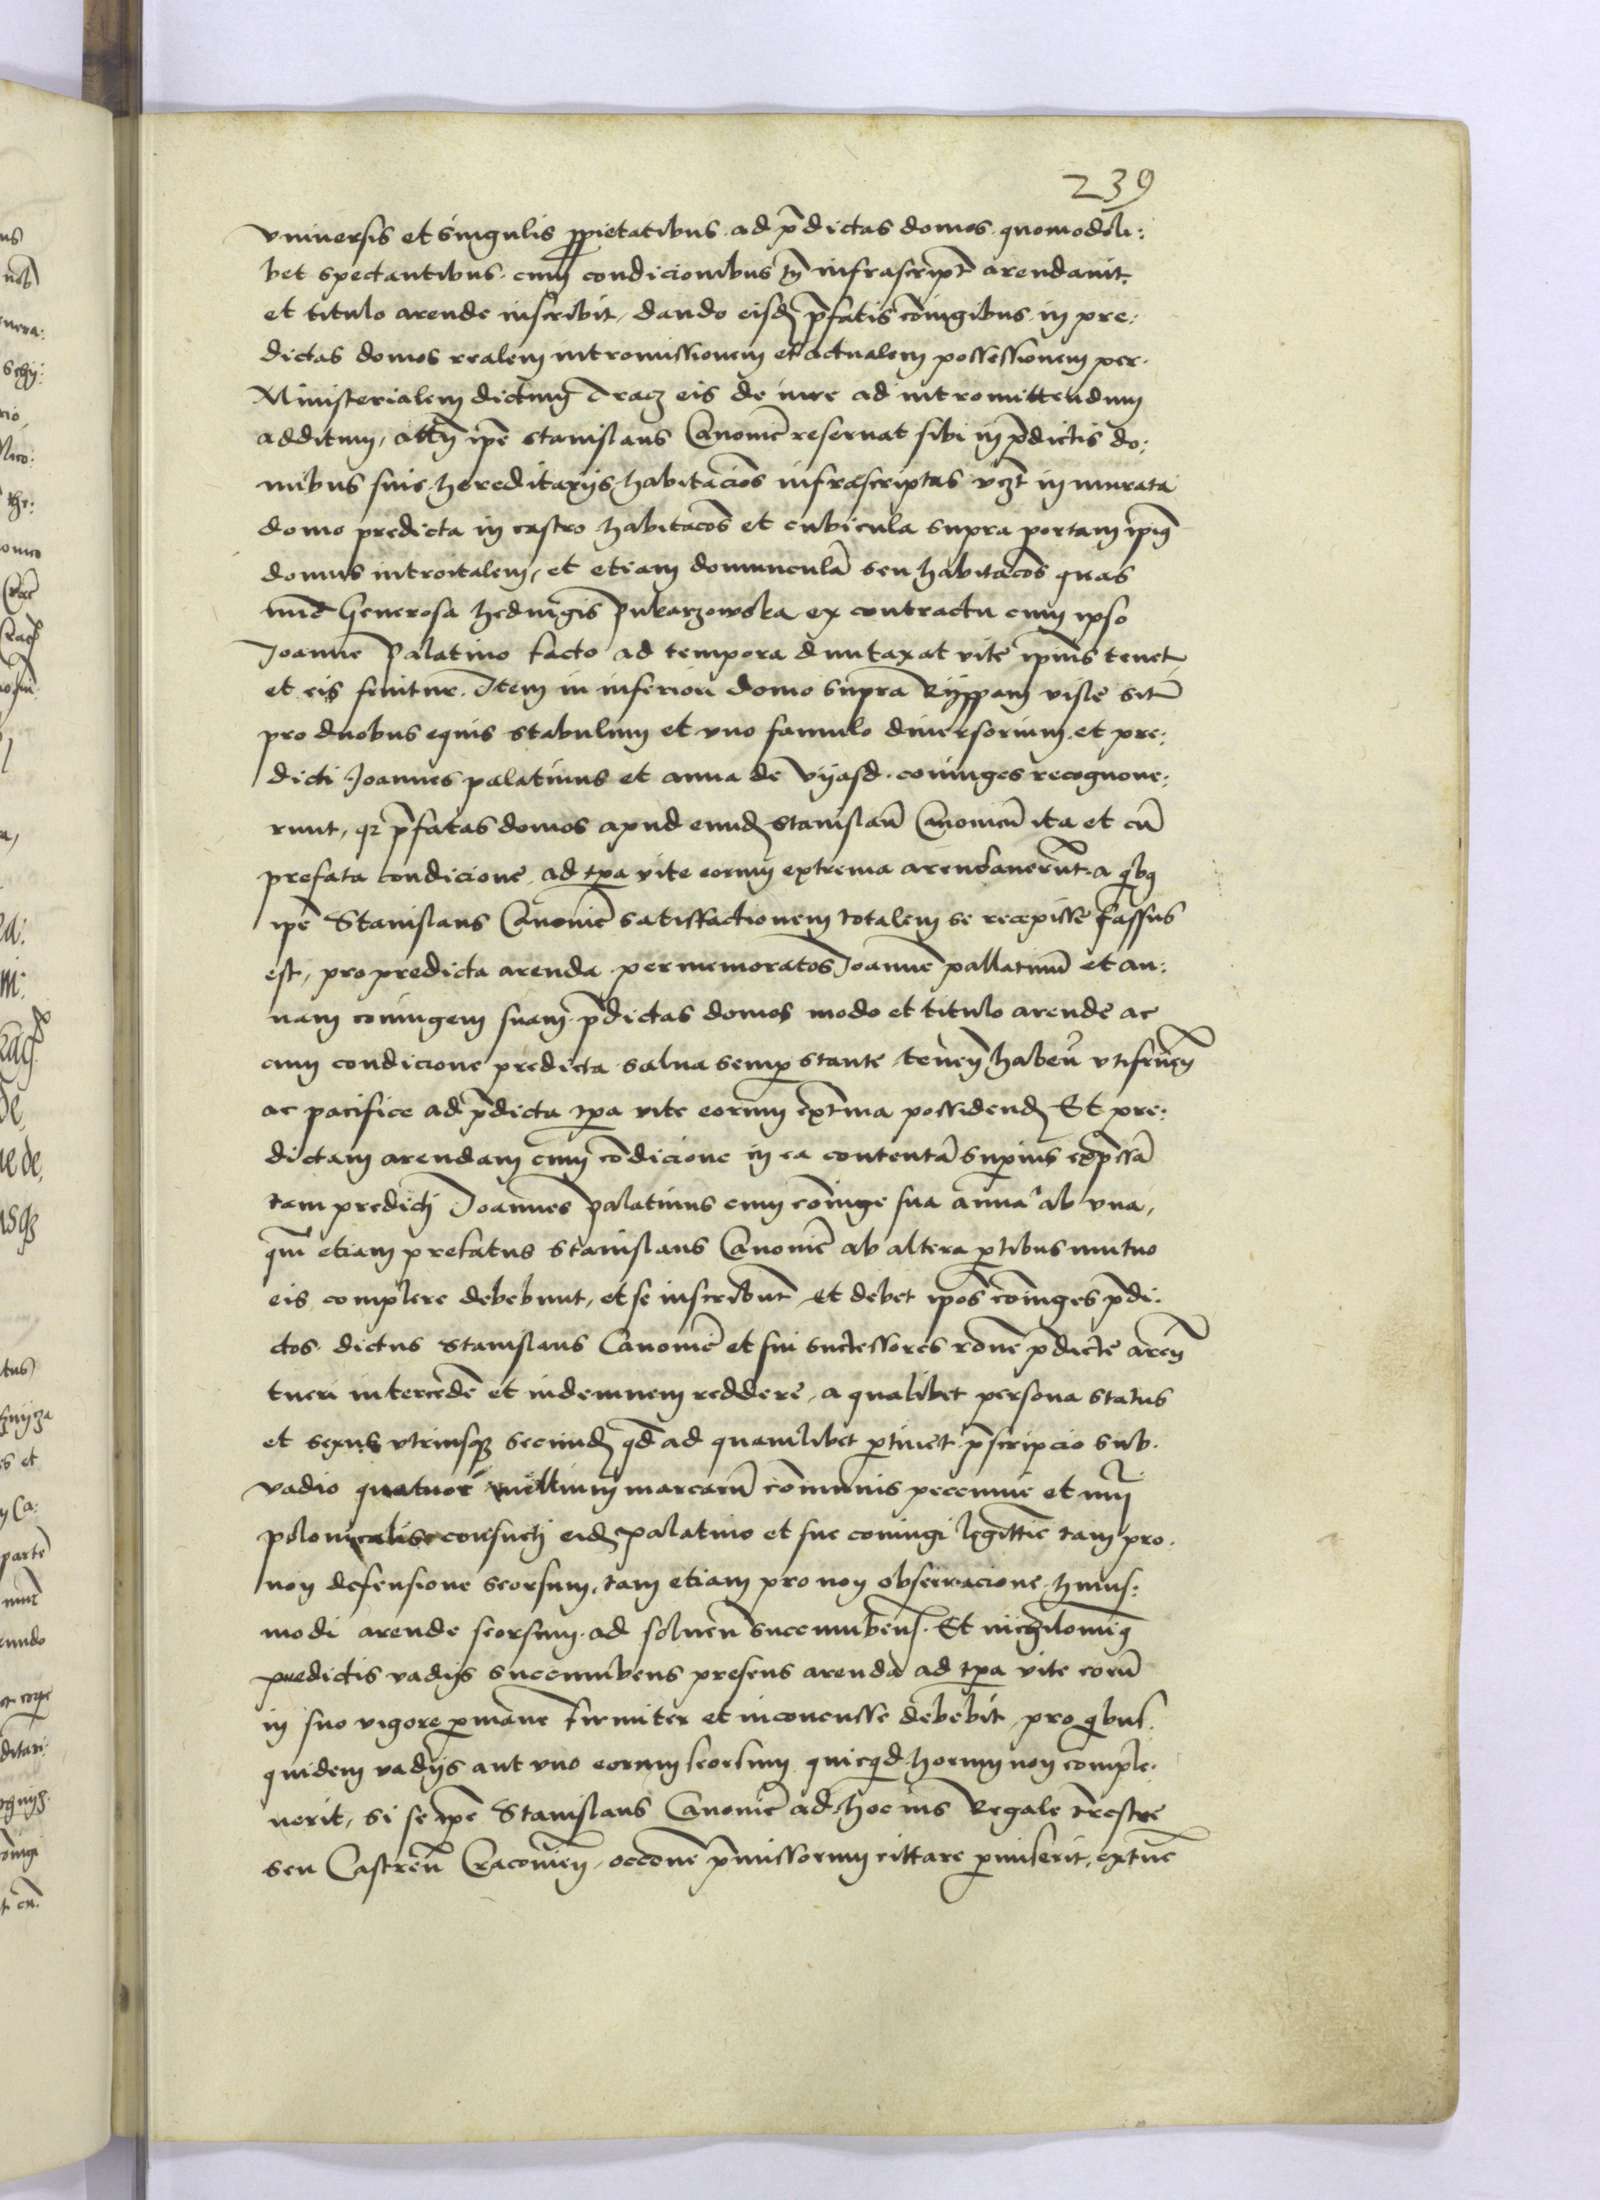 239
vniuersis et singulis ꝓpietatibus ad p̄dictas domos quomodoli:
bet spectantibus. cum condicionibus tn̄ infrascript̄ arendauit
et titulo arende inscribit, dando eisdē p̄fatis cōiugibus in pre:
dictas domos realem intromissionem et actualem possessionem per
Ministerialem dictum Tracz eis de iure ad intromittendum
additum, attn̄ ip̄e Stanislaus Canonic̄ reseruat sibi in p̄dictis do:
mibus suis hereditarijs habitacio͞es infrascriptas vcz̄t in murata
domo predicta in castro habitaco͞es et cubicula supra portam ip̄iꝰ
domus introitalem, et etiam domunculā seu habitaco͞es quas
nūc Generosa Hedwigis Pukarzowska ex contractu cum ipso
Joanne Palatino facto ad tempora duntaxat vite ip̄ius tenet
et eis fruitur. Item in inferiori domo supra Ryppam visle sit̄
pro duobus equis stabulum et vno famulo diuersorium. et pre:
dicti Joannes palatinus et anna de Vyasd coniuges recognoue:
runt, qꝛ p̄fatas domos apud eundē Stanislaū Canonicū ita et cū
prefata condicione ad tp̄a vite eorum extrema arendauerūt a qibꝫ
ip̄e Stanislaus Canonic̄ satisfactionem totalem se recepisse fassus
est, pro predicta arenda per memoratos Joannē pallatinū et an:
nam coniugem suam p̄dictas domos modo et titulo arende ac
cum condicione predicta salua semꝑ stante teneñ habeñ vtifrueñ
ac pacifice ad p̄dicta tp̄a vite eorum ext̄ma possidendē Et pre:
dictam arendam cum cōdicione in ea contentā superius exp̄ssā
tam predicti Joannes Palatinus cum cōiuge sua anna ab vna,
qm̄ etiam prefatus Stanislaus Canonic̄ ab altera ꝑtibus mutuo
eis complere debebunt, et se inscribūt et debet ip̄os cōiuges p̄di:
ctos dictus Stanislaus Canonic̄ et sui successores ro͞ne p̄dicte areñ
tueri intercedē et indemnem reddere, a qualibet persona status
et sexus vtriusqꝫ secundē qd̄ ad quamlibet ꝑtinet p̄scripcio sub
vadio quatuor millium marcarū communis peccunie et nūi
polonicalis consueti eidē palatino et sue coniugi legittie tam pro
non defensione seorsum, tam etiam pro non obseruacione huius:
modi arende seorsum ad soluen̄ succumbens̄. Et nichilominꝰ
predictis vadijs succumbens presens arenda ad tp̄a vite eorū
in suo vigore ꝑmane firmiter et inconcusse debebit, pro qibus
quidem vadijs aut vno eorum seorsum quicqd horum non comple:
uerit, si se ip̄e Stanislaus Canonic̄ ad hoc ius Regale tr̄estre
seu Castreñ Cracouień, occ͞one p̄missorum cittare ꝑmiserit, extūc